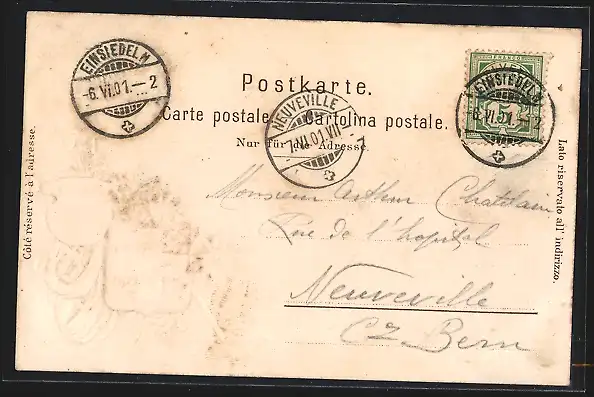 FRANCO
EINSIEDELN
-6.VI.01.--2
EINSIEDELN
Postkarte.
Carte postale. Cartolina postale.
NEUVEVILLE
7.VI.01.VII
Nur für die Adresse.
Côté réservé à l'adresse.
Lato riservato all' indirizzo.
Monsieur Arthur Châtelain
Rue de l'hopital
Neuveville
Ct. Bern